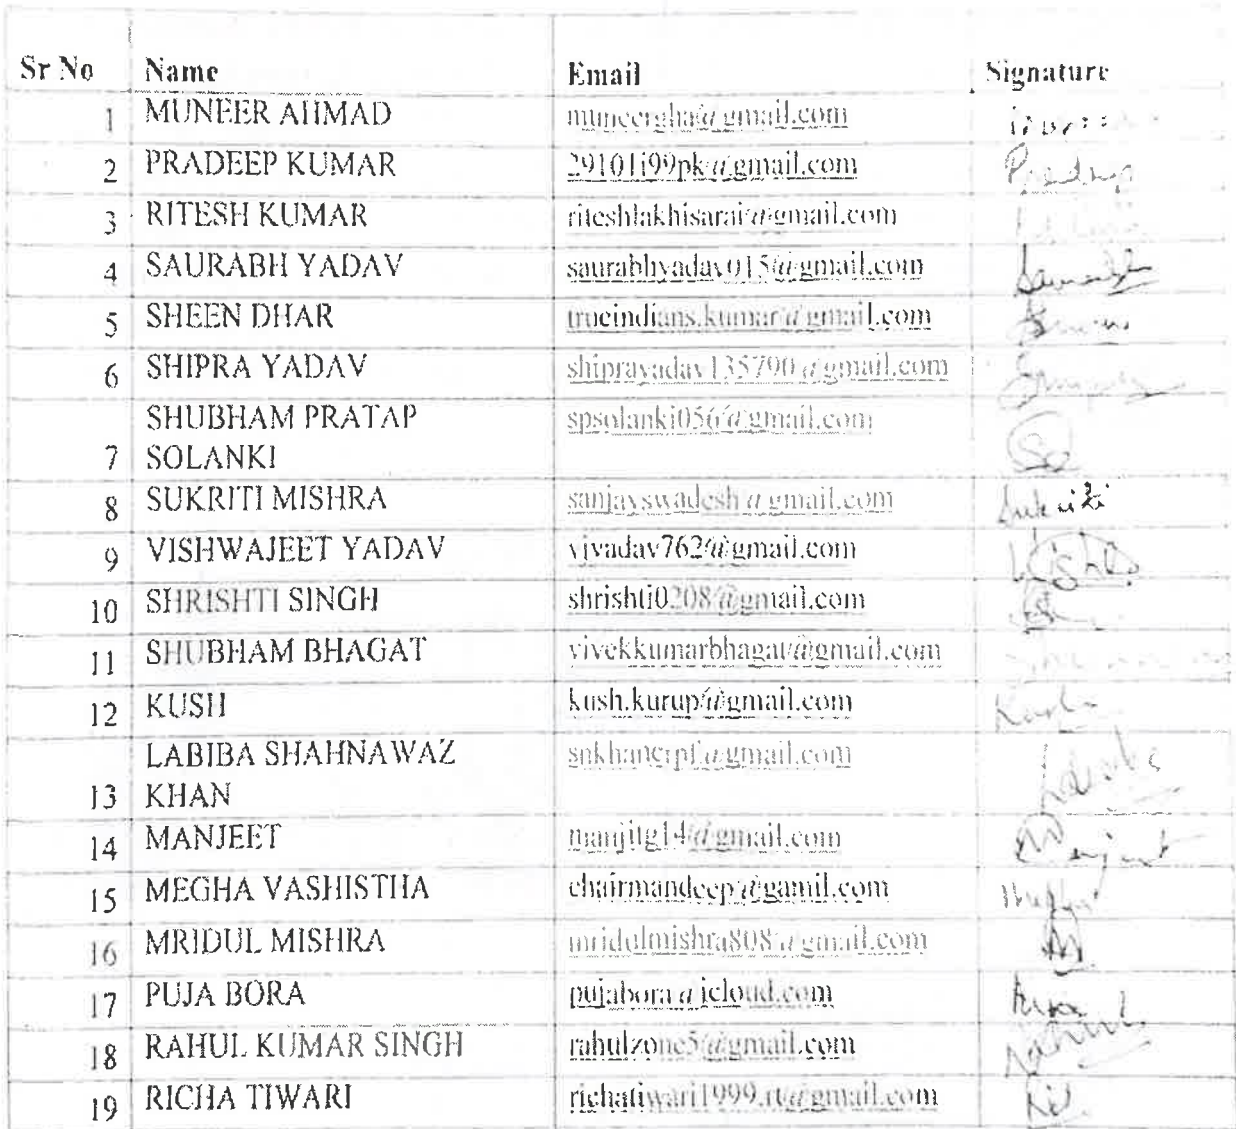 Sr No Name Email Signature
1 MUNEER AHMAD muneergha@gmail.com
2 PRADEEP KUMAR 29101i99pk@gmail.com Pradeep
3 RITESH KUMAR riteshlakhisarai@gmail.com
4 SAURABH YADAV saurabhyadav015@gmail.com Saurabh
5 SHEEN DHAR trueindians.kumar@gmail.com
6 SHIPRA YADAV shiprayadav135790@gmail.com
SHUBHAM PRATAP spsolanki056@gmail.com
7 SOLANKI
8 SUKRITI MISHRA sanjayswadesh@gmail.com Sukriti
9 VISHWAJEET YADAV vjyadav762@gmail.com
10 SHRISHTI SINGH shrishti0208@gmail.com
11 SHUBHAM BHAGAT vivekkumarbhagat@gmail.com
12 KUSH kush.kurup@gmail.com Kush
LABIBA SHAHNAWAZ snkhancrpf@gmail.com
13 KHAN Labiba
14 MANJEET manjitg14@gmail.com Manjeet
15 MEGHA VASHISTHA chairmandeep@gamil.com Megha
16 MRIDUL MISHRA mridulmishra808@gmail.com
17 PUJA BORA pujabora@icloud.com
18 RAHUL KUMAR SINGH rahulzone5@gmail.com Rahul
19 RICHA TIWARI richatiwari1999.rt@gmail.com